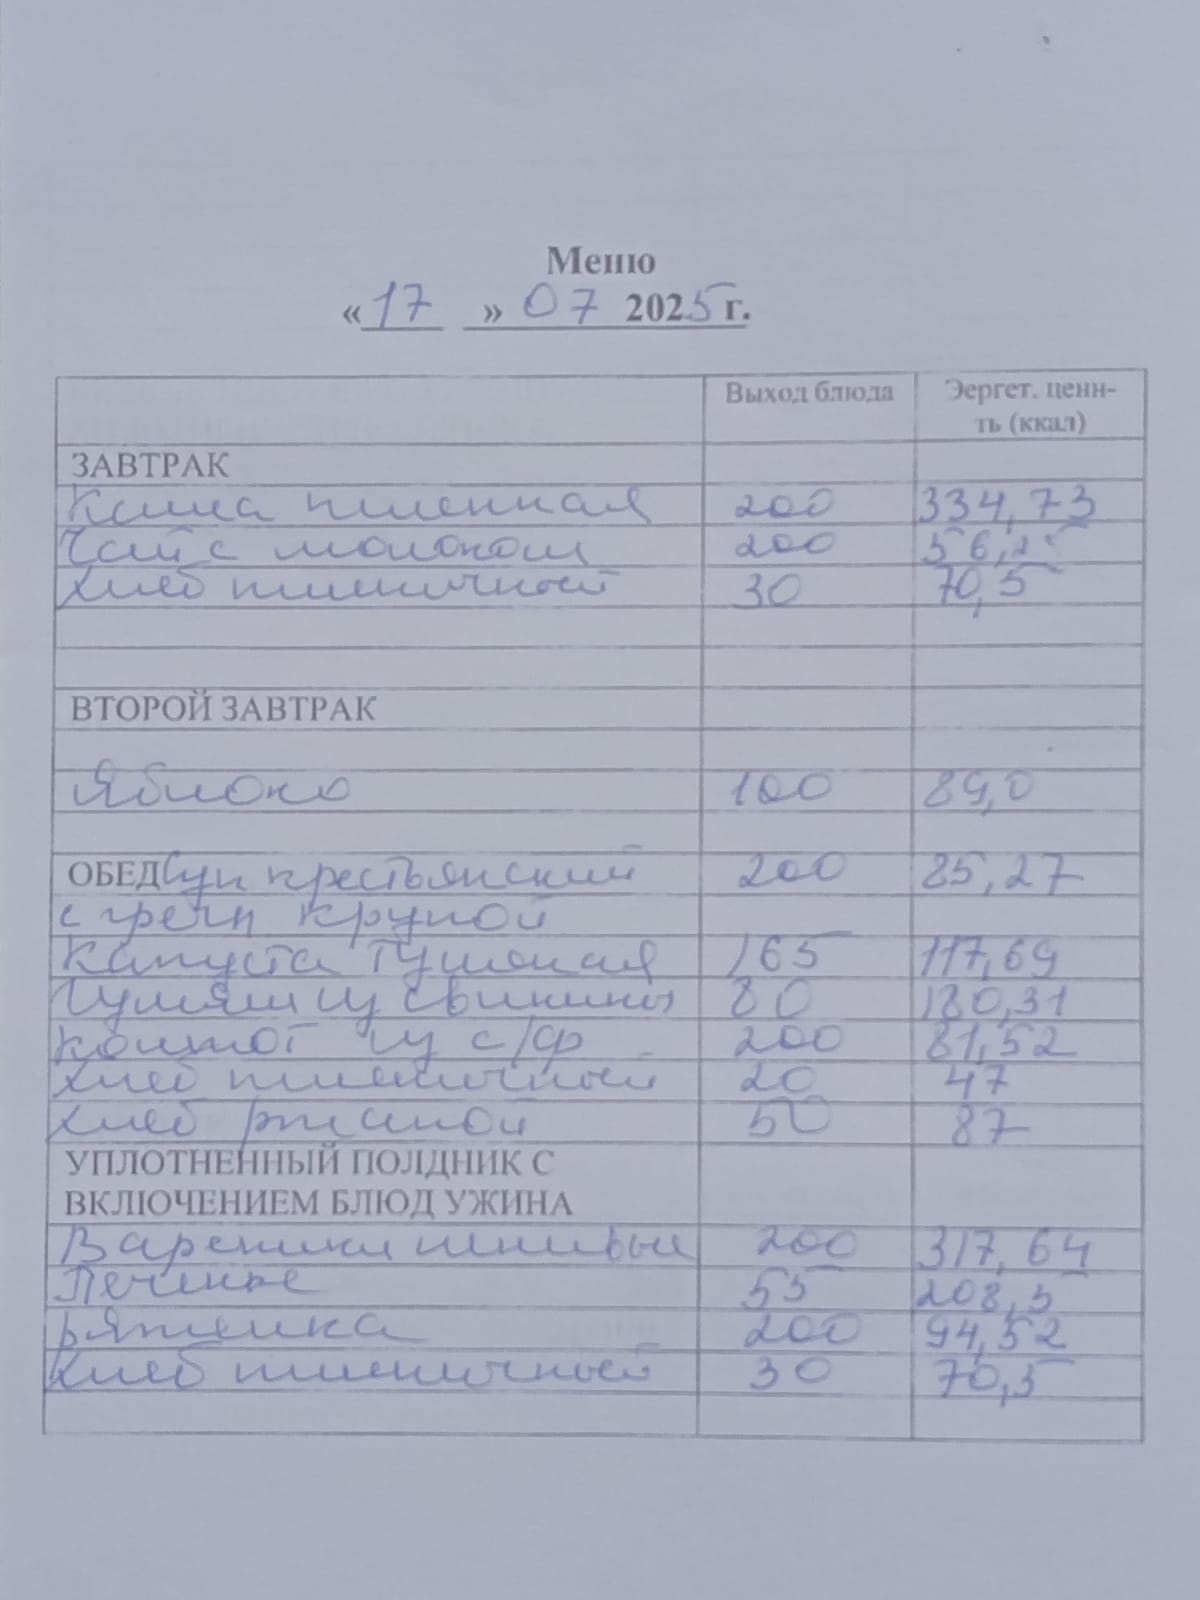 Меню
«17» 07 2025 г.
Выход блюда Эергет. ценн-
ть (ккал)
ЗАВТРАК
Каша пшенная 200 334,73
Чай с молоком 200 56,25
Хлеб пшеничный 30 70,5
ВТОРОЙ ЗАВТРАК
Яблоко 100 89,0
ОБЕД Суп крестьянский 200 85,27
с гречн крупой
Капуста тушеная 165 117,69
Гуляш из свинины 80 180,31
Компот из с/ф 200 81,52
Хлеб пшеничный 20 47
Хлеб ржаной 50 87
УПЛОТНЕННЫЙ ПОЛДНИК С
ВКЛЮЧЕНИЕМ БЛЮД УЖИНА
Вареники ленивые 200 317,64
Печенье 55 208,5
Ряженка 200 94,52
Хлеб пшеничный 30 70,5